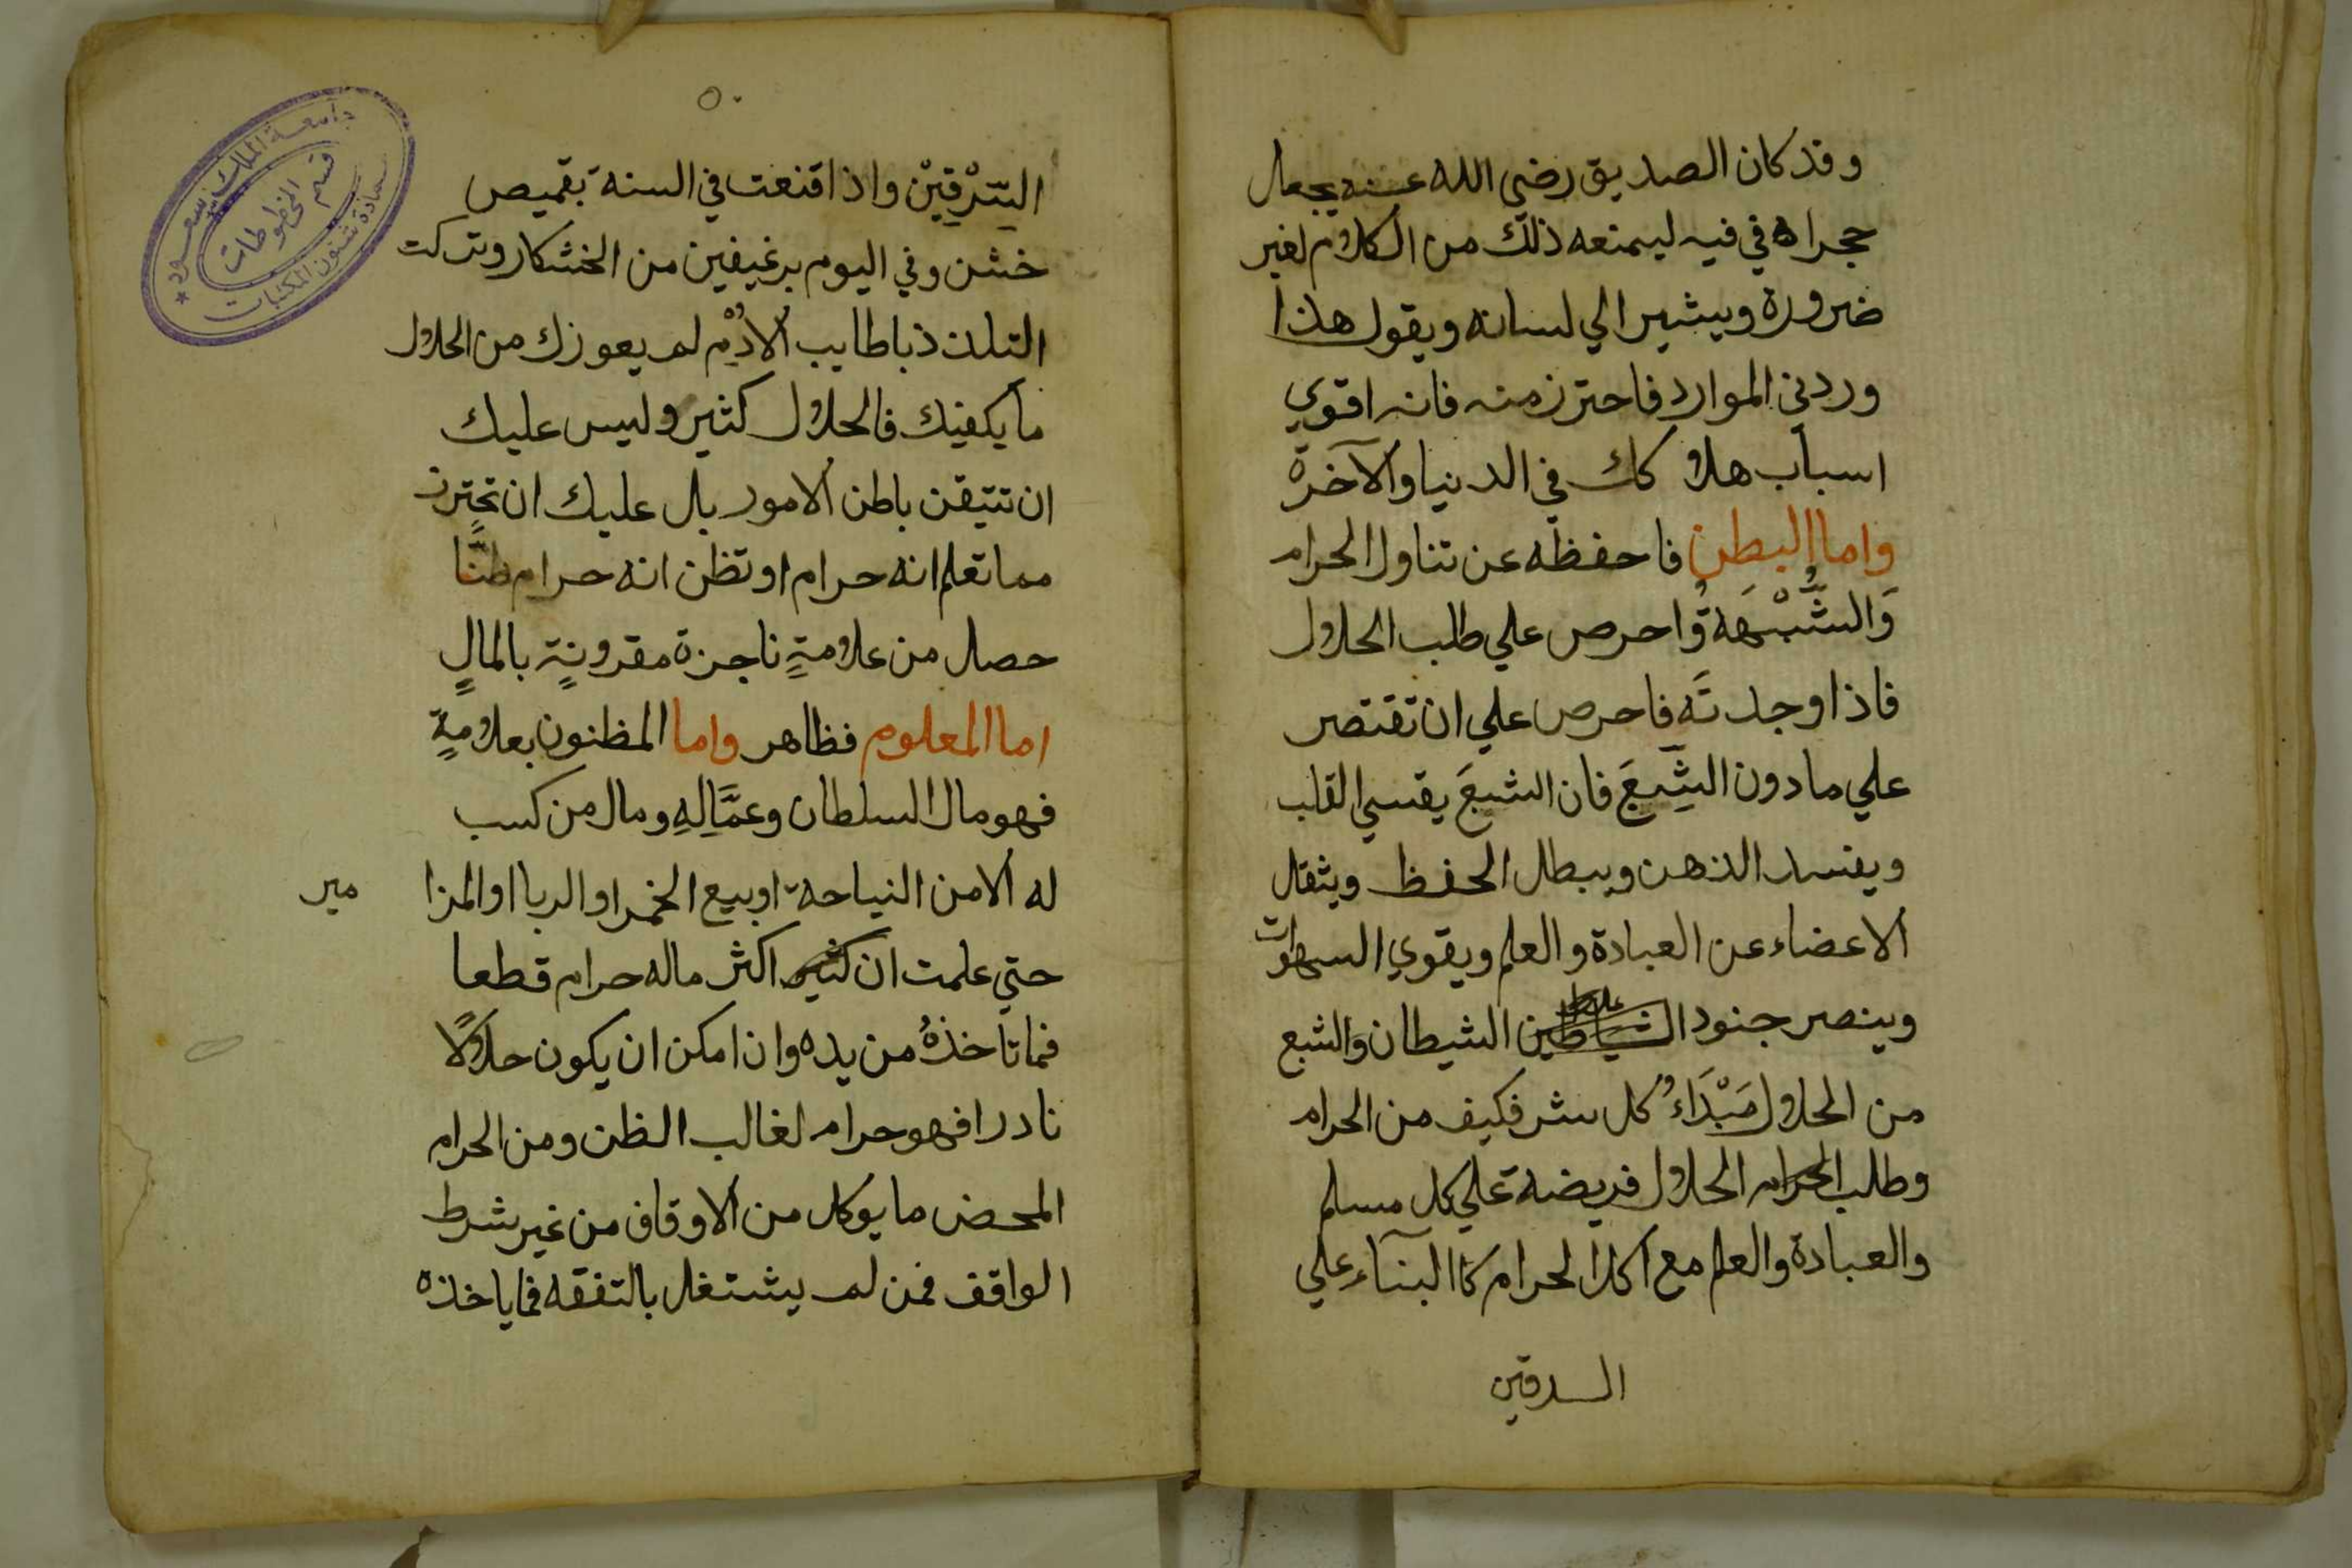 وقد كان الصديق رضي الله عنه يجعل
حجراه في فيه ليمنعه ذلك من الكلام لغير
ضرورة ويشير الي لسانه ويقول هذا
وردني الموارد فاحترز منه فانه اقوي
اسباب هلا كك في الدنيا والآخرة
واما البطن فاحفظه عن تناول الحرام
وَالشُّبْهَةُ واحرص علي طلب الحلال
فاذا وجدتَه فاحرص علي ان تقتصر
علي مادون الشِّبَعَ فان الشبعَ يقسي القلب
ويفسد الذهن ويبطل الحفظ ويثقل
الاعضاء عن العبادة والعلم ويقوي السهوات
وينصر جنود الشياطين الشيطان والشبع
من الحلال مَبْدَاءُ كل شر فكيف من الحرام
وطلب الحرام الحلال فريضة علي كل مسلم
والعبادة والعلم مع اكل الحرام كاالبنآء علي
السرقين
٥٠
السِّرْقِيْن واذا قنعت في السنة بقميص
خشن وفي اليوم برغيفين من الخشكار وتركت
التلذذ باطايب الادُمْ لم يعوزك من الحلال
ما يكفيك فالحلال كثير وليس عليك
ان تتيقن باطن الامور بل عليك ان تحترز
مما تعلم انه حرام او تظن انه حرام ظنًّا
حصل من علامةٍ ناجزة مقرونةٍ بالمالِ
اما المعلوم فظاهر واما المظنون بعلامةٍ
فهو مال السلطان وعمَّالِهِ ومال من كسب
له الامن النياحة اوبيع الخمر او الربا او المزا
مير
حتي علمت ان كثير اكثر ماله حرام قطعا
فما تاخذهُ من يده وان امكن ان يكون حلالًا
نادرا فهو حرام لغالب الظن ومن الحرام
المحض ما يوكل من الاوقاف من غير شرط
الواقف فمن لم يشتغل بالتفقه فما ياخذه
جامعة الملك سعود
قسم المخطوطات
عمادة شئون المكتبات